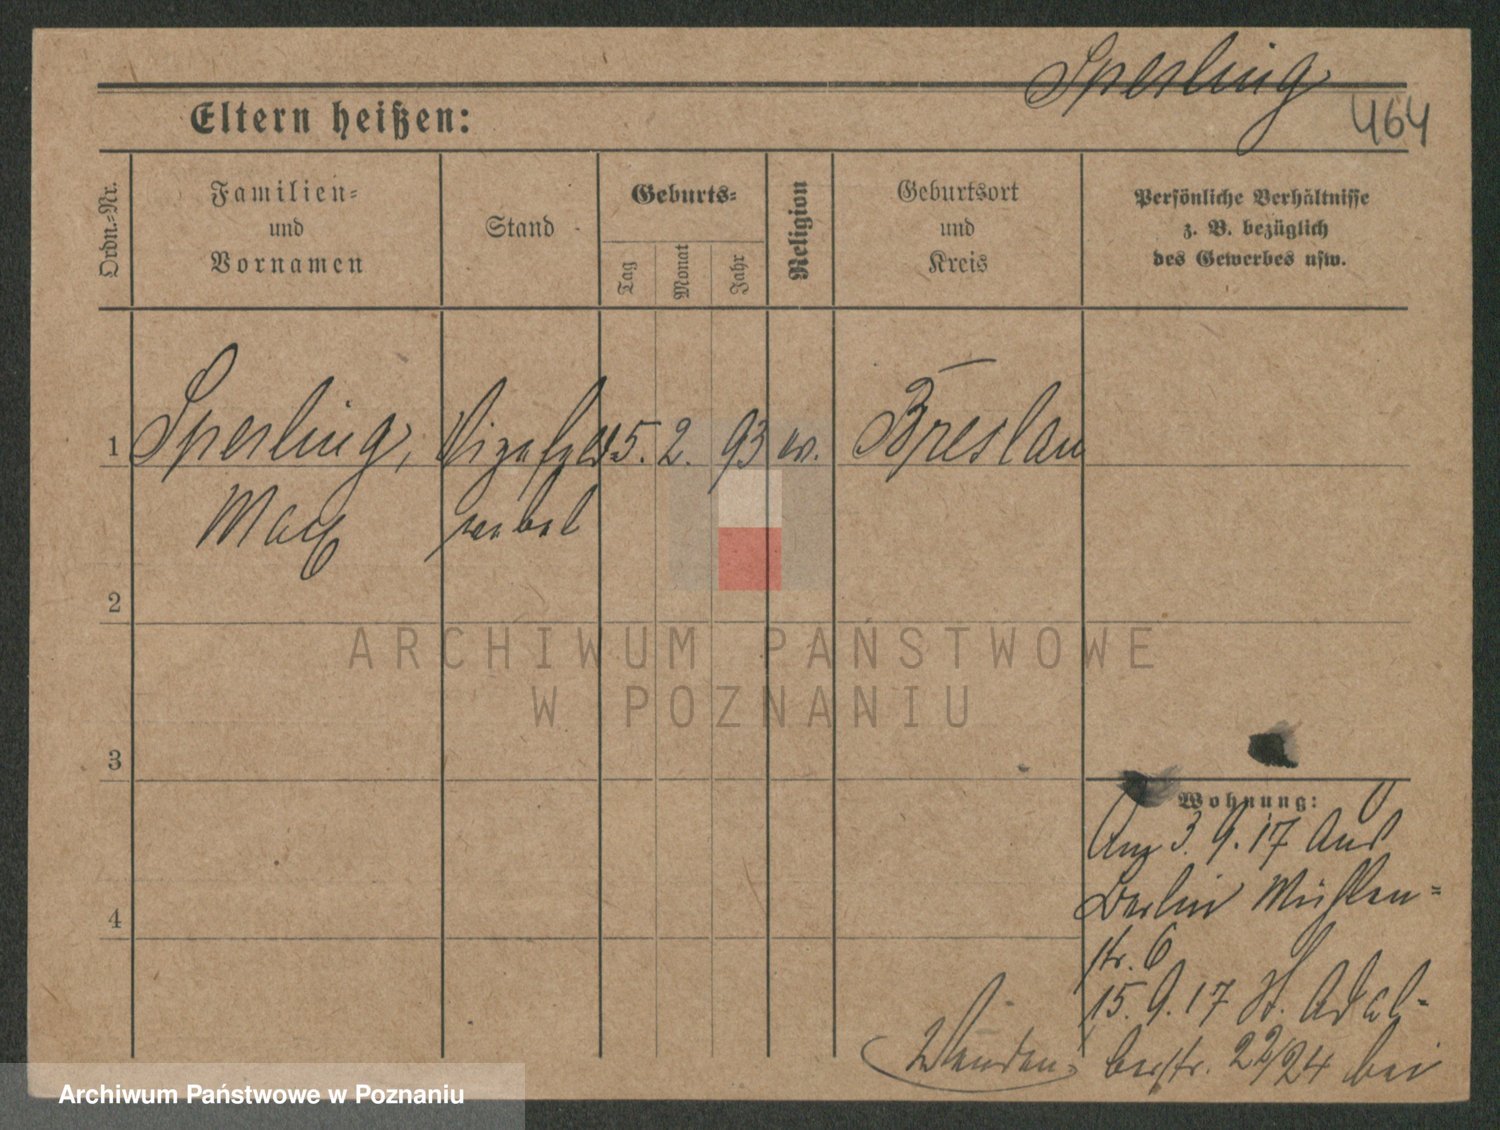 Sperling
464
Eltern heißen:
Ordn.-Nr.
Familien-
und
Vornamen
Stand
Geburts-
Tag
Monat
Jahr
Religion
Geburtsort
und
Kreis
Persönliche Verhältnisse
z. B. bezüglich
des Gewerbes usw.
1 Sperling, Vizefeld 15. 2. 93 ev. Breslau
Max webel
2
3
4
Wohnung:
Anz 3. 9. 17 aus
Berlin Mühlen-
str. 6
15. 9. 17 St. Adal-
berstr. 22/24 bei
Wenden
ARCHIWUM PAŃSTWOWE
W POZNANIU
Archiwum Państwowe w Poznaniu